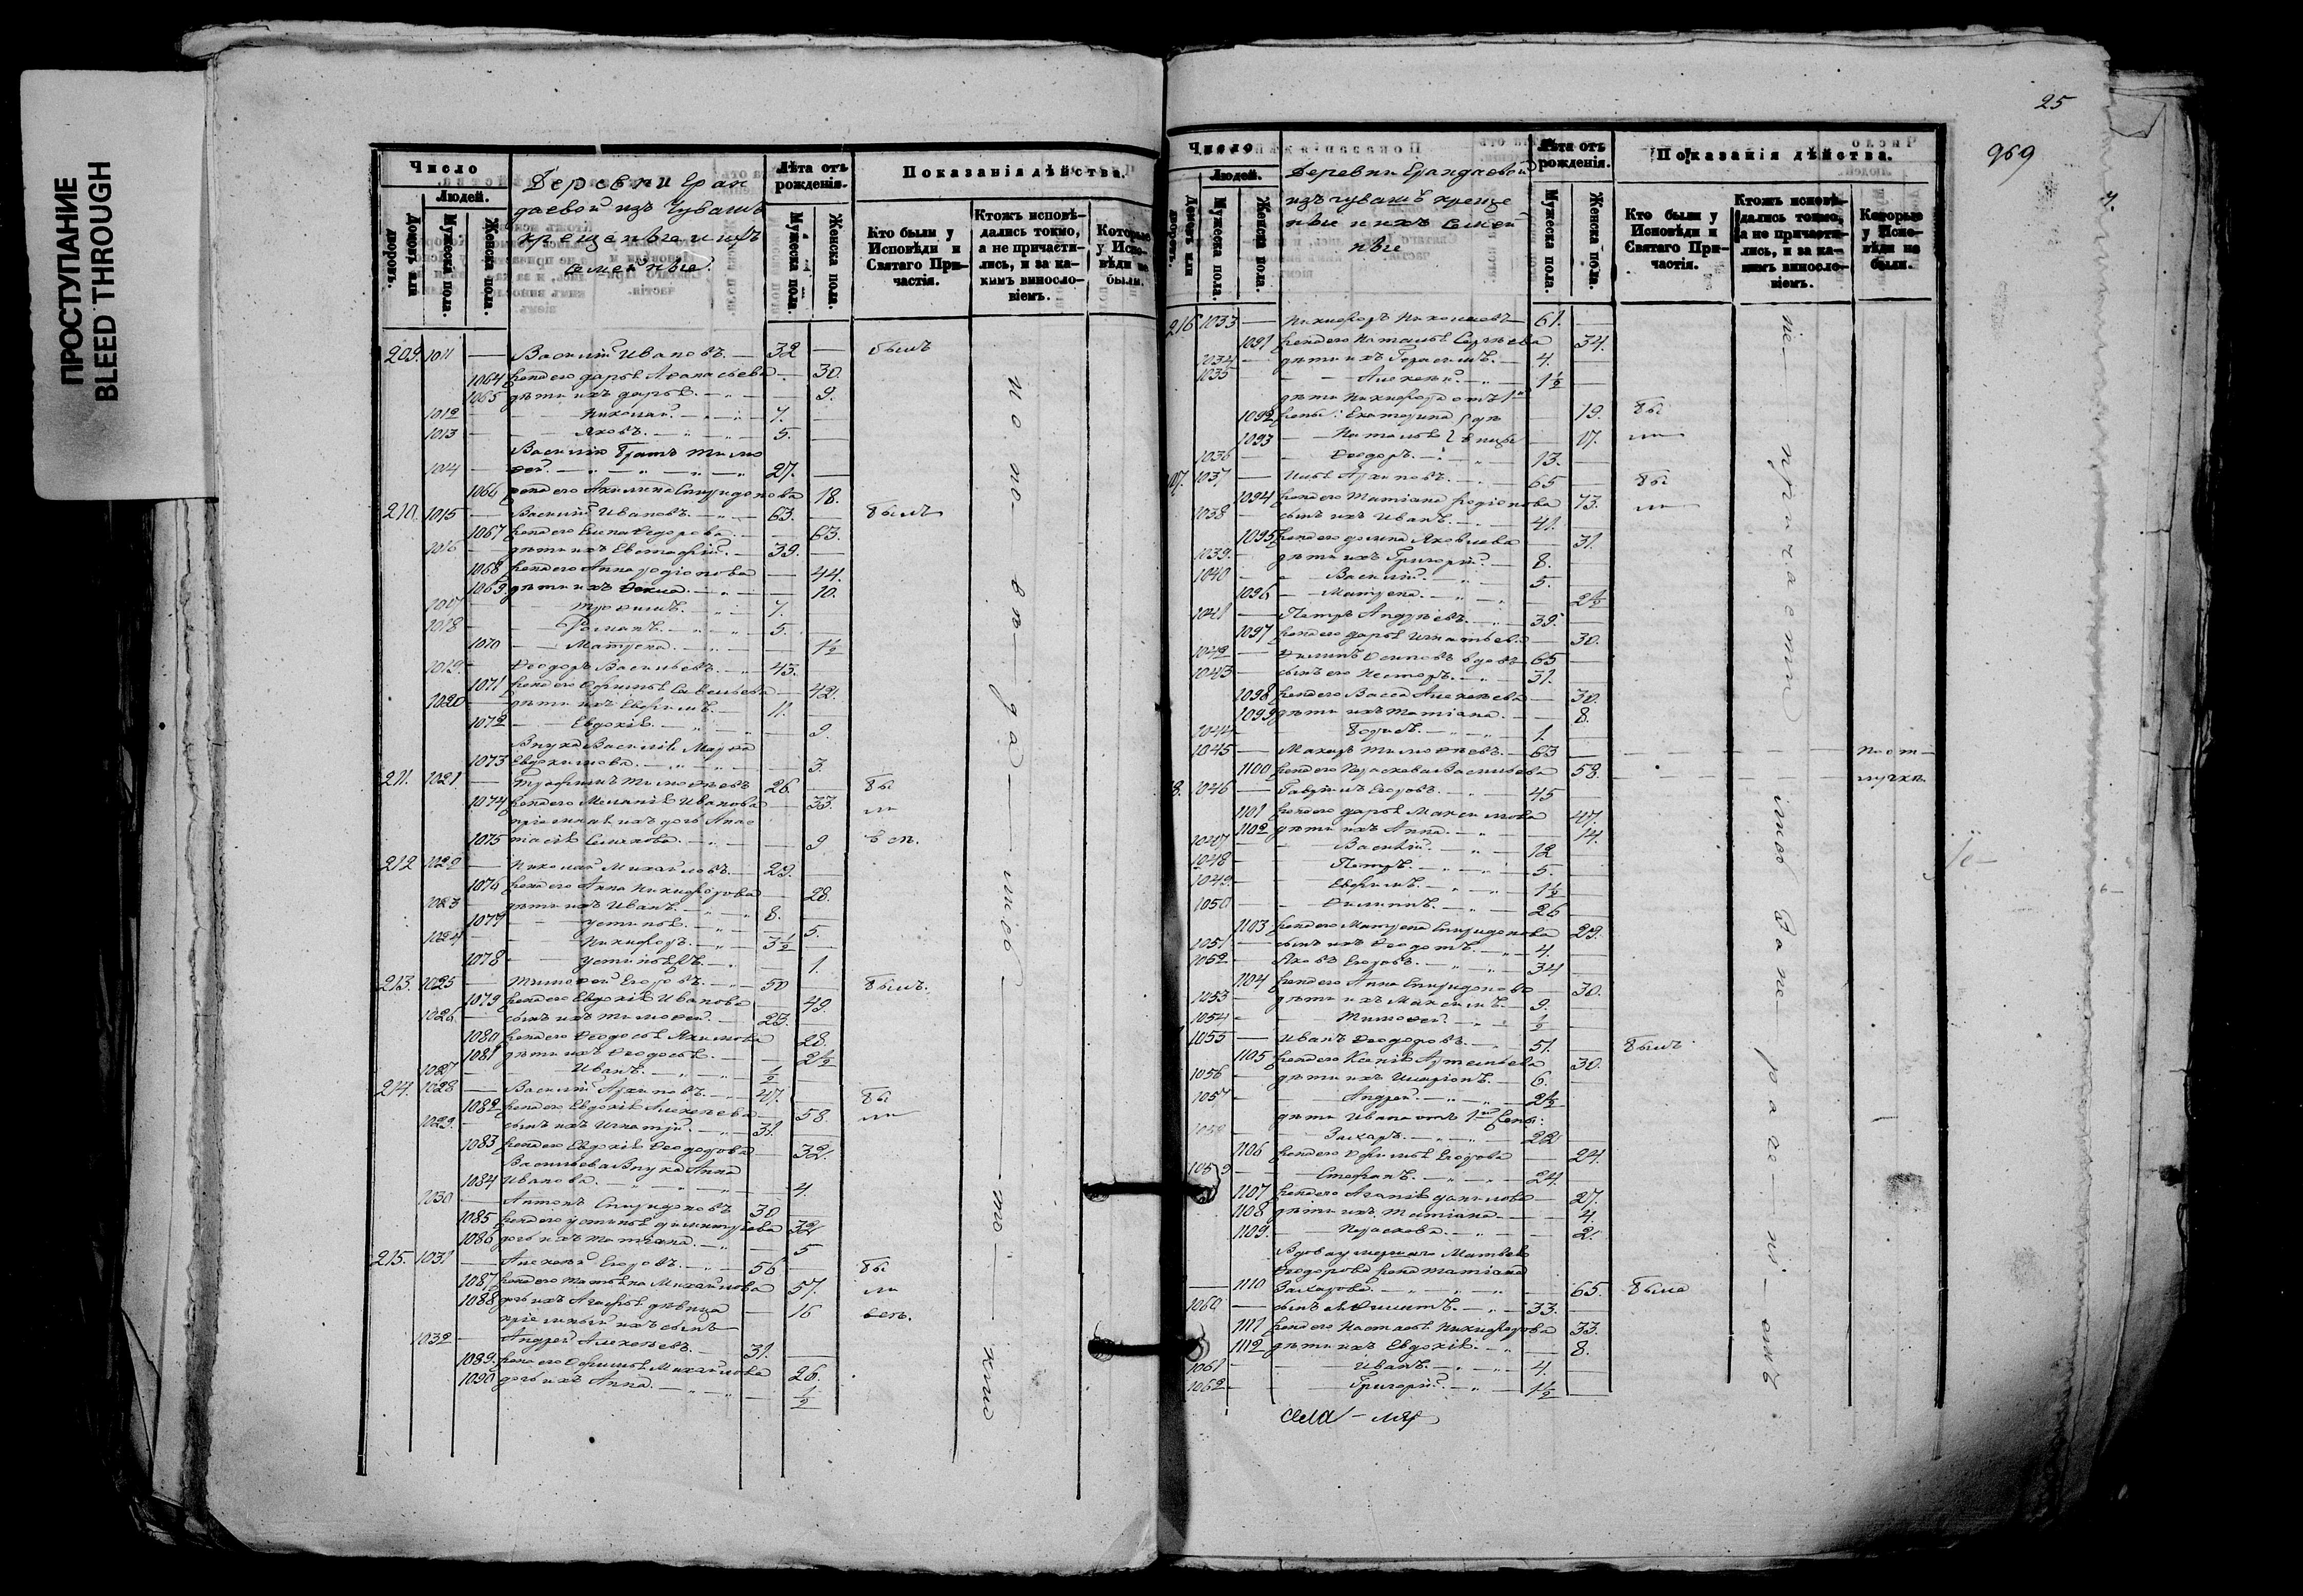 ПРОСТУПАНИЕ
BLEED THROUGH
Число
Людей.
Домовъ или дворовъ.
Мужеска пола.
Женска пола.
Деревни Еран
даевой изъ Чувашъ
крещеные и ихъ
семейные.
Лѣта отъ рожденія.
Мужеска пола.
Женска пола.
Показанія дѣйства.
Кто были у Исповѣди и Святаго Причастія.
Ктожъ исповѣдались токмо, а не причастились, и за какимъ винословіемъ.
Которые у Исповѣди не были.
209. 1011 — Василій Ивановъ. — 32 — былъ
1064 жена его Дарья Аѳанасьева — 30.
1065 дѣти ихъ Дарья. — 9.
1012 — Николай. — 7.
1013 — Яковъ. — 5.
Василія братъ Тимо
1014 — ѳей. — 27.
1066 жена его Акилина Спиридонова 18.
210. 1015 — Василій Ивановъ. — 63. былъ
1067 жена его Елена Ѳедорова. — 63.
1016 — дѣти ихъ Евстафій. — 39.
1068 жена его Анна Родіонова — 44.
1069. дѣти ихъ — 10.
1017 — Трофимъ. — 7.
1018 — Романъ. — 5.
1070 — Матрена. — 1½
1019 — Ѳеодоръ Васильевъ. — 43.
1071 жена его Офимья Савельева — 42.
1020 — дѣти ихъ Ефремъ. — 11.
1072 — Евдокія. — 9.
Внука Василія Марѳа
1073 Евдокимова. — 3.
211. 1021 — Трофимъ Тимоѳеевъ 26. бы
1074 жена его Меланія Иванова 33. ли
пріемная ихъ дочь Анас
1075 тасія Семенова. — 9 всѣ.
212 1022 — Николай Михайловъ. — 29.
1076 жена его Анна Никифорова 28.
1023 дѣти ихъ Иванъ. — 8.
1077 — Устинья. — 5.
1024 — Никифоръ. — 3½
1078 — Устинья. — 1.
213. 1025 — Тимоѳей Егоровъ. — 50 былъ.
1079 жена его Евдокія Иванова 49.
1026. — сынъ ихъ Тимоѳей. — 23.
1080 жена его Ѳеодосья Якимова 28.
1081 дѣти ихъ Ѳеодосья. — 2½
1027 — Иванъ. — ½
214. 1028 — Василій Архиповъ. — 47. бы
1082 жена его Евдокія Алексѣева 58. ли
1029. — сынъ ихъ Игнатій. — 31.
1083 жена его Евдокія Ѳеодорова 32.
Васильева Внука Анна
1084 Иванова. — 4.
1030 — Антонъ Спиридоновъ 30
1085 жена его Устинья Димитріева 32
1086 дочь ихъ Татіана. — 5
215. 1031 — Алексѣй Егоровъ. — 56 бы
1087 жена его Татьяна Михайлова 57. ли
1088 дочь ихъ Агафья дѣвица — 16 всѣ.
пріемный ихъ сынъ
1032 — Андрей Алексѣевъ. — 31.
1089. жена его Офимья Михайлова 26.
1090 дочь ихъ Анна. — ½
25
969
Число
Людей.
Домовъ или дворовъ.
Мужеска пола.
Женска пола.
Деревни Ерандаевой
изъ чувашъ креще
ные и ихъ семей
ные
Лѣта отъ рожденія.
Мужеска пола.
Женска пола.
Показанія дѣйства.
Кто были у Исповѣди и Святаго Причастія.
Ктожъ исповѣдались токмо, а не причастились, и за какимъ винословіемъ.
Которые у Исповѣди не были.
216 1033 — Никифоръ Николаевъ — 61.
1091 жена его Наталья Сергѣева 34.
1034 — дѣти ихъ Герасимъ. — 4.
1035 — Алексѣй. — 1½
дѣти Никифора отъ 1й
1092 жены: Екатерина — 19. бы
1093 — Наталья — 17. ли
1036 — Ѳеодоръ. — 13.
1037 — Илья Архиповъ. — 65 бы
1094 жена его Татіана Родіонова 73. ли
1038 — сынъ ихъ Иванъ. — 41.
1095 жена его Домна Яковлева 31.
1039. — дѣти ихъ Григорій. — 8.
1040 — Василій. — 5.
1096 — Матрена. — 2½
1041 — Петръ Андреевъ. — 39.
1097 жена его Дарья Игнатьева 30.
1042 — Филипъ Осиповъ вдовъ 65
1043 — сынъ его Несторъ. — 31.
1098 жена его Васса Алексѣева — 30.
1099 дѣти ихъ Татіана. — 8.
1044 — Борисъ. — 1.
1045 — Макаръ Тимоѳеевъ. — 63 — въ от
1100 жена его Парасковья Васильева 58. — лучкѣ.
1046 — Гавріилъ Егоровъ. — 45
1101 жена его Дарья Максимова 47.
1102 дѣти ихъ Анна. — 14.
1047 — Василій. — 12
1048 — Петръ. — 5.
1049. — Ефимъ. — 1½
1050 — Филиппъ. — 26
1103 жена его Матрена Спиридонова 29.
1051 — сынъ ихъ Ѳеодотъ. — 4.
1052 — Яковъ Егоровъ. — 34
1104 жена его Анна Спиридонова 30.
1053 — дѣти ихъ Максимъ. — 9.
1054 — Тимоѳей. — ½
1055 — Иванъ Ѳеодоровъ. — 51. былъ
1105 жена его Ксенія Артемьева 30.
1056 — дѣти ихъ Иларіонъ. — 6.
1057 — Андрей. — 2½
дѣти Ивана отъ 1ой жены:
1058 — Захаръ. — 22
1106 жена его Офимья Егорова 24.
1059 — Стефанъ. — 24
1107 жена его Агапія Данилова 27.
1108 дѣти ихъ Татіана — 4.
1109. — Парасковья. — 2.
Вдова умершаго Матвѣя
Ѳеодорова жена Татіана
1110 Захарова. — 65. была
1060 — сынъ ея Филипъ. — 33.
1111 жена его Настасья Никифорова 33.
1112 дѣти ихъ Евдокія. — 8.
1061 — Иванъ. — 4.
1062 — Григорій. — 1½
села